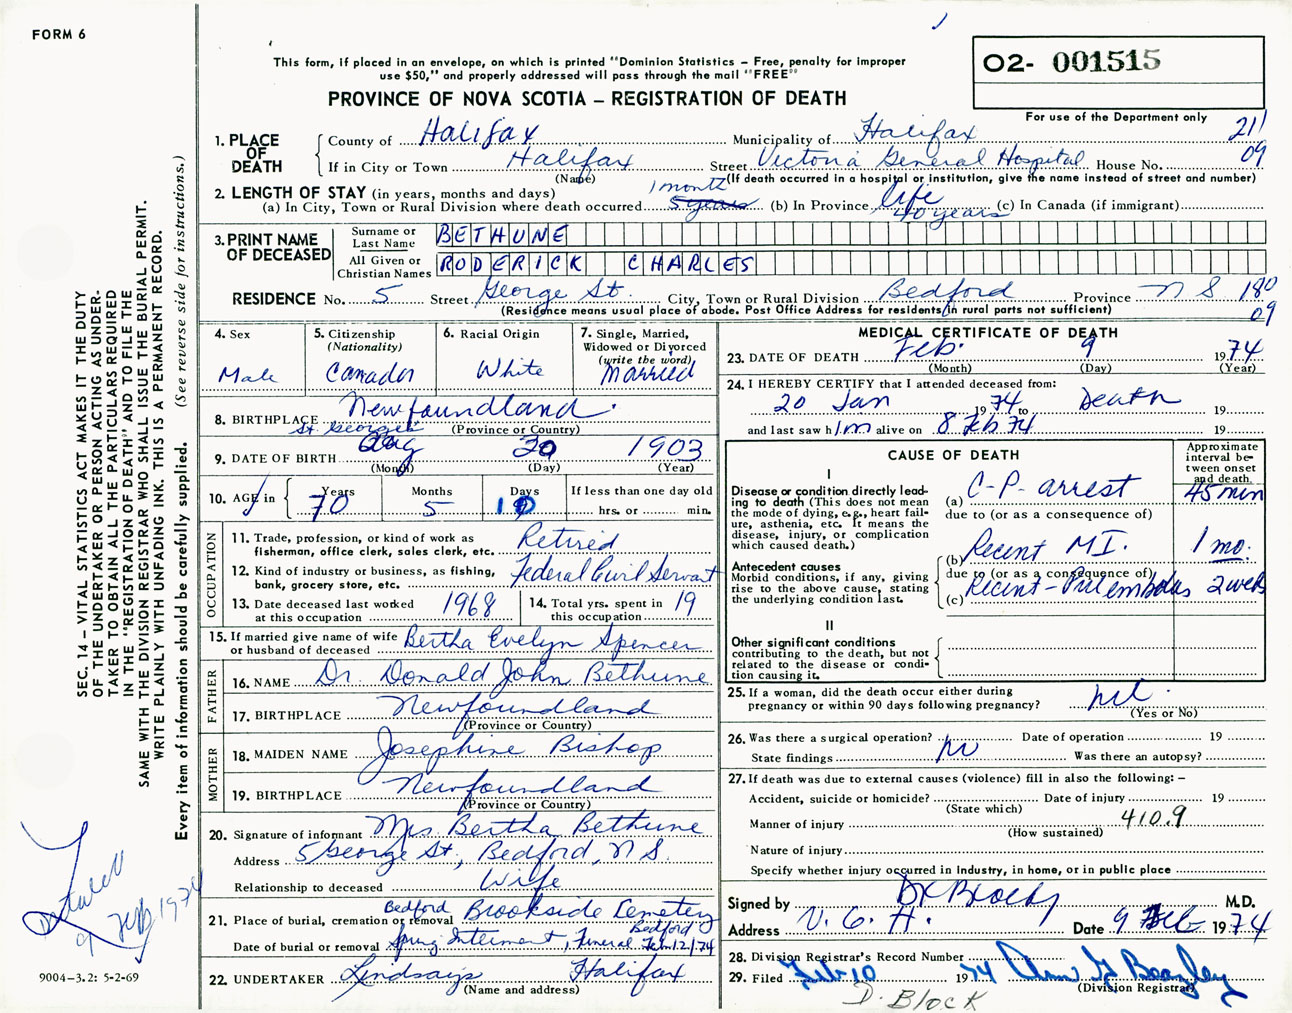 FORM 6
This form, if placed in an envelope, on which is printed "Dominion Statistics – Free, penalty for improper
use $50," and properly addressed will pass through the mail "FREE"
PROVINCE OF NOVA SCOTIA – REGISTRATION OF DEATH
02- 001515
For use of the Department only
211
09
1. PLACE OF DEATH
County of Halifax Municipality of Halifax
If in City or Town Halifax Street Victoria General Hospital House No.
(Name) (If death occurred in a hospital or institution, give the name instead of street and number)
2. LENGTH OF STAY (in years, months and days)
1 month life
(a) In City, Town or Rural Division where death occurred 5 years (b) In Province 40 years (c) In Canada (if immigrant)
3. PRINT NAME OF DECEASED
Surname or Last Name BETHUNE
All Given or Christian Names RODERICK CHARLES
RESIDENCE No. 5 Street George St. City, Town or Rural Division Bedford Province N S 180
09
(Residence means usual place of abode. Post Office Address for residents in rural parts not sufficient)
4. Sex
Male
5. Citizenship
(Nationality)
Canada
6. Racial Origin
White
7. Single, Married,
Widowed or Divorced
(write the word)
Married
8. BIRTHPLACE Newfoundland
St. Georges (Province or Country)
9. DATE OF BIRTH Aug 30 1903
(Month) (Day) (Year)
10. AGE in
Years Months Days If less than one day old
70 5 10 hrs. or min.
OCCUPATION
11. Trade, profession, or kind of work as
fisherman, office clerk, sales clerk, etc. Retired
12. Kind of industry or business, as fishing,
bank, grocery store, etc. Federal Civil Servant
13. Date deceased last worked
at this occupation 1968
14. Total yrs. spent in
this occupation 19
15. If married give name of wife
or husband of deceased Bertha Evelyn Spencer
FATHER
16. NAME Dr. Donald John Bethune
17. BIRTHPLACE Newfoundland
(Province or Country)
MOTHER
18. MAIDEN NAME Josephine Bishop
19. BIRTHPLACE Newfoundland
(Province or Country)
20. Signature of informant Mrs Bertha Bethune
Address 5 George St., Bedford, N S.
Relationship to deceased Wife
21. Place of burial, cremation or removal Bedford Brookside Cemetery
Bedford
Date of burial or removal Spring Interment, Funeral Feb 12/74
22. UNDERTAKER Lindsays Halifax
(Name and address)
MEDICAL CERTIFICATE OF DEATH
23. DATE OF DEATH Feb. 9 1974
(Month) (Day) (Year)
24. I HEREBY CERTIFY that I attended deceased from:
20 Jan 1974 to Death 19
and last saw him alive on 8 Feb 74 19
CAUSE OF DEATH
Approximate
interval be-
tween onset
and death.
I
Disease or condition directly lead-
ing to death (This does not mean
the mode of dying, e.g., heart fail-
ure, asthenia, etc. It means the
disease, injury, or complication
which caused death.)
(a) C-P- arrest 45 min
due to (or as a consequence of)
Antecedent causes
Morbid conditions, if any, giving
rise to the above cause, stating
the underlying condition last.
(b) Recent M I. 1 mo.
due to (or as a consequence of)
(c) Recent - Pul embolus 2 weeks
II
Other significant conditions
contributing to the death, but not
related to the disease or condi-
tion causing it.
25. If a woman, did the death occur either during
pregnancy or within 90 days following pregnancy?
(Yes or No)
26. Was there a surgical operation? no Date of operation 19
State findings Was there an autopsy?
27. If death was due to external causes (violence) fill in also the following: –
Accident, suicide or homicide? Date of injury 19
(State which)
Manner of injury 410.9
(How sustained)
Nature of injury
Specify whether injury occurred in Industry, in home, or in public place
Signed by D K Block M.D.
Address V. G. H. Date 9 Feb 1974
28. Division Registrar's Record Number
29. Filed Feb 10 1974
(Division Registrar)
D. BLOCK
SEC. 14 – VITAL STATISTICS ACT MAKES IT THE DUTY
OF THE UNDERTAKER OR PERSON ACTING AS UNDER-
TAKER TO OBTAIN ALL THE PARTICULARS REQUIRED
IN THE "REGISTRATION OF DEATH" AND TO FILE THE
SAME WITH THE DIVISION REGISTRAR WHO SHALL ISSUE THE BURIAL PERMIT.
WRITE PLAINLY WITH UNFADING INK. THIS IS A PERMANENT RECORD.
Every item of information should be carefully supplied. (See reverse side for instructions.)
9 Feb 1974
9004-3.2: 5-2-69